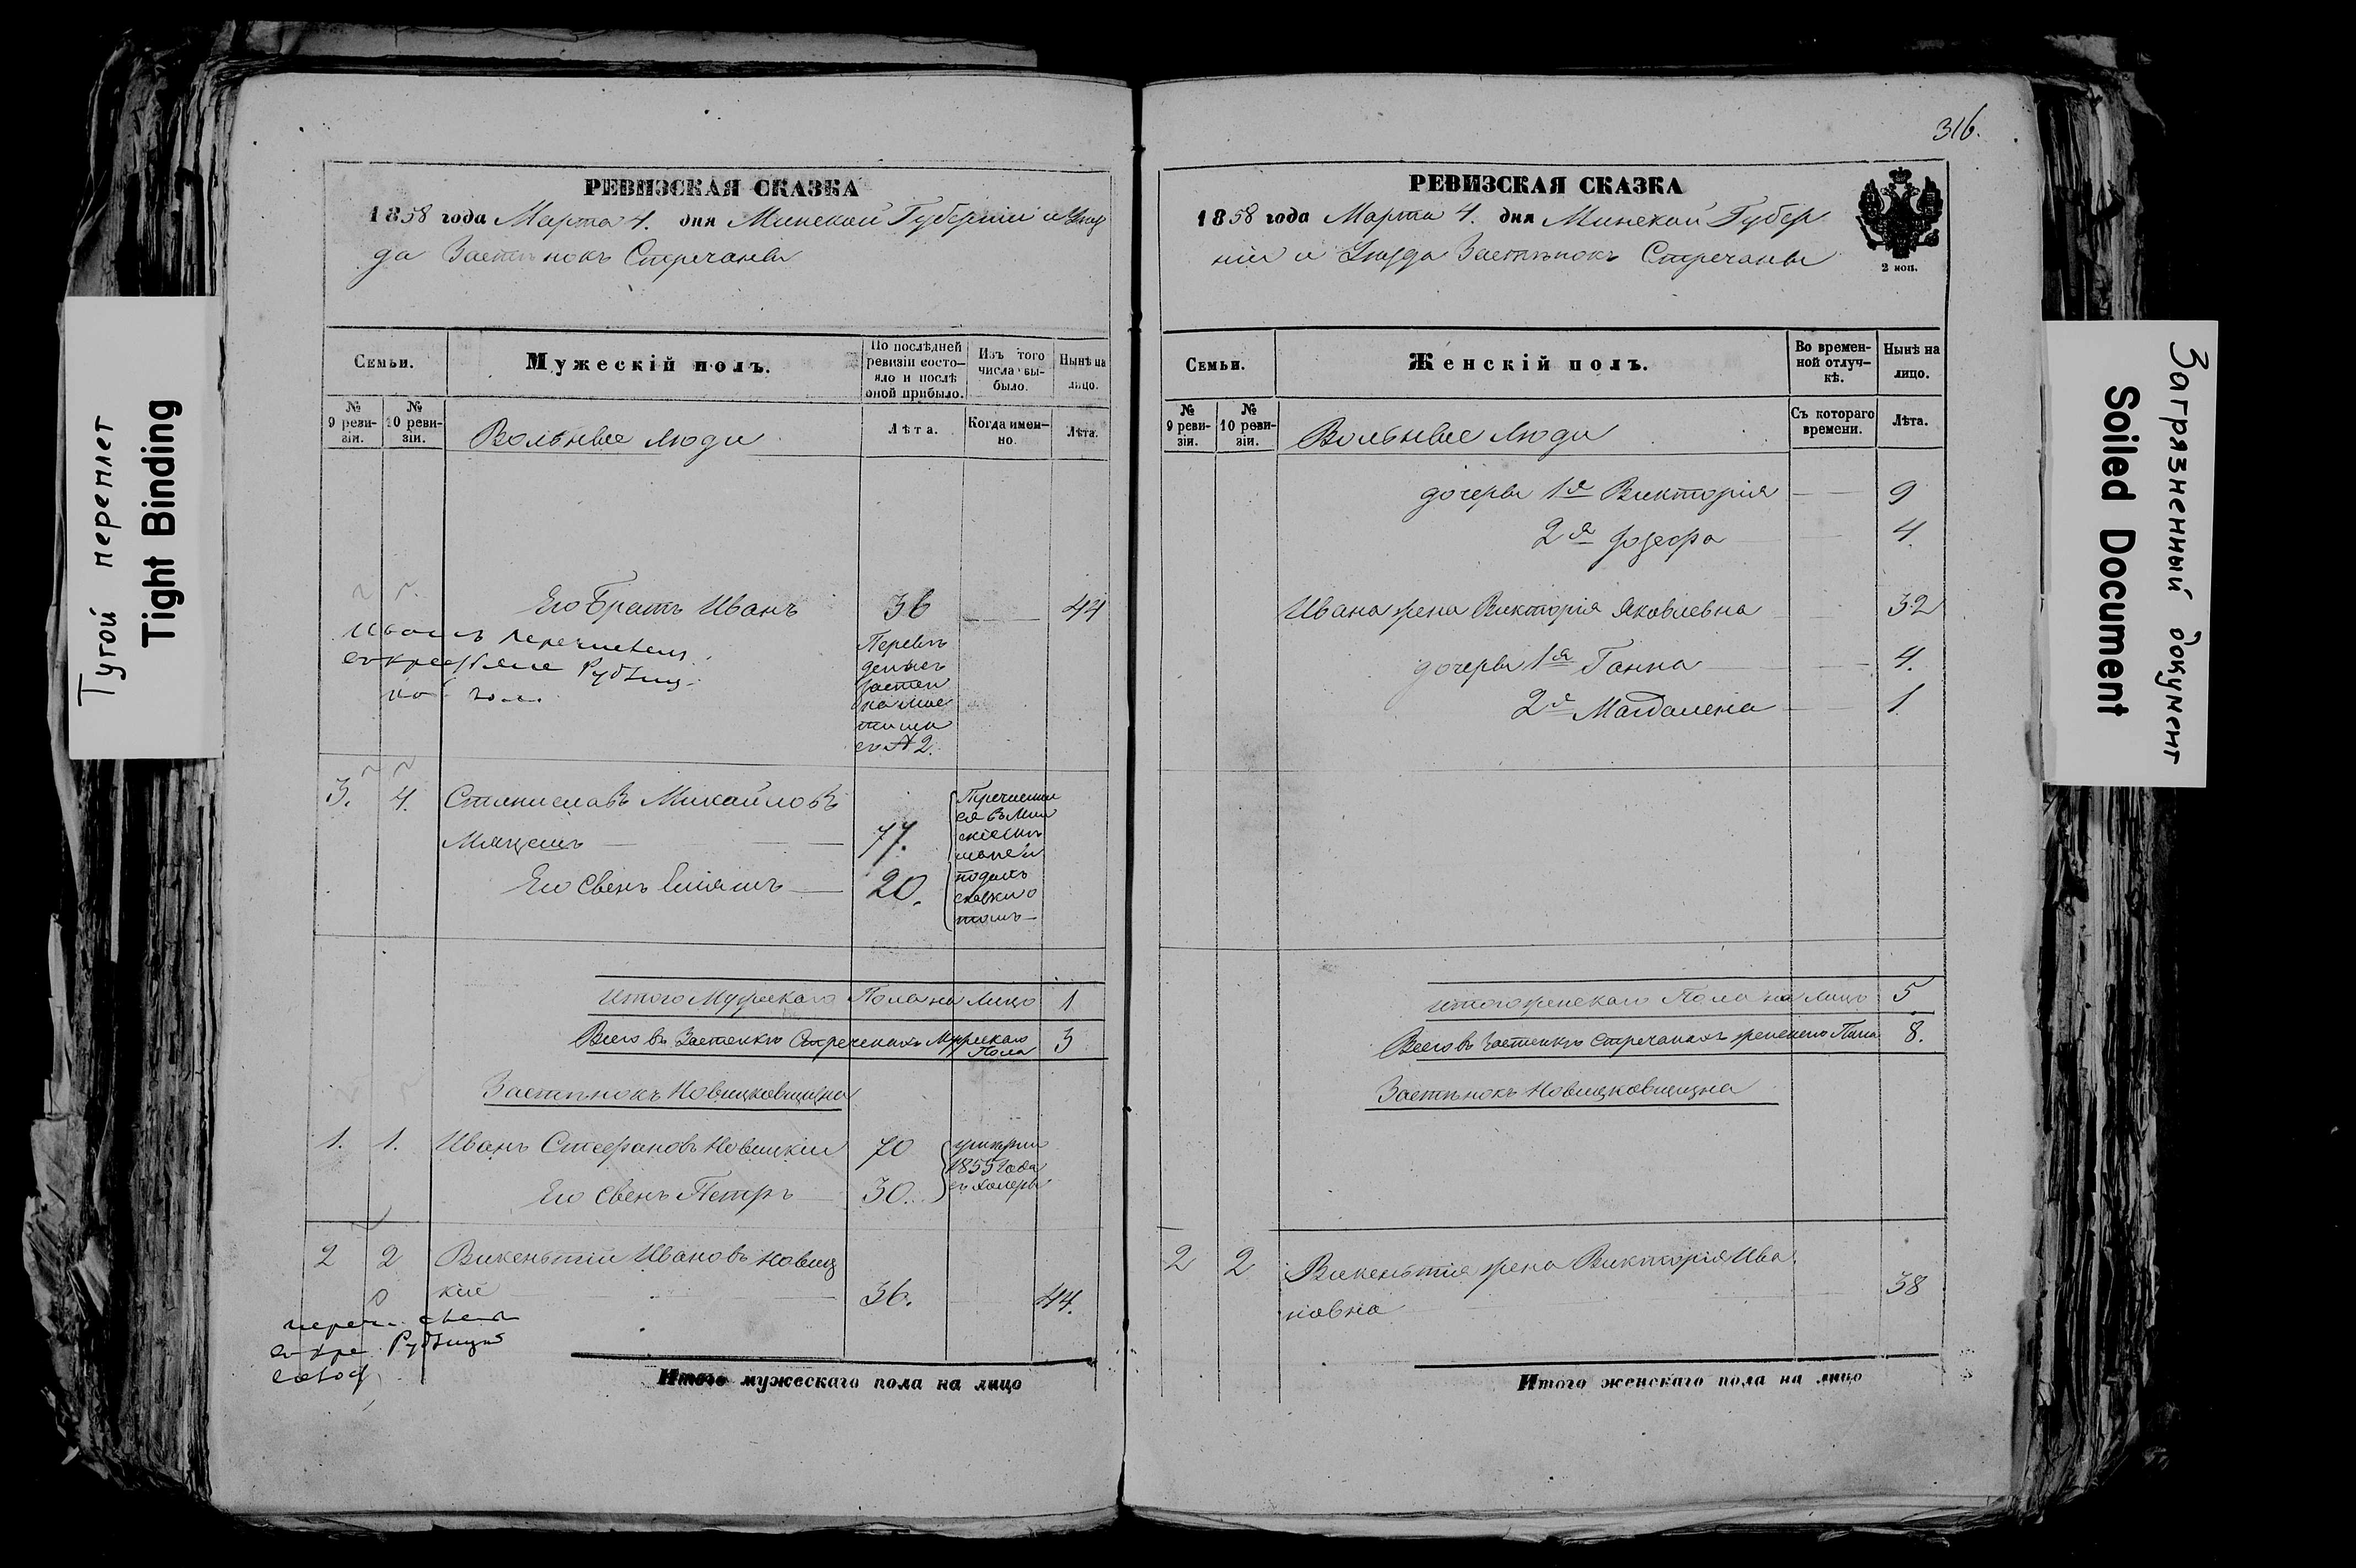 316.
РЕВИЗСКАЯ СКАЗКА
1858 года Марта 4. дня Минской Губерніи и Уѣз
да Застѣнокъ Стречаны
Семьи.
Мужескій полъ.
По послѣдней ревизіи состо-
яло и послѣ
оной прибыло.
Изъ того
числа вы-
было.
Нынѣ на
лицо.
№
9 реви-
зіи.
№
10 реви-
зіи.
Вольные люди
Лѣта.
Когда имен-
но.
Лѣта.
Его братъ Иванъ 36 44
Иванъ перечисленъ
Переве
денъ изъ
№ 2.
3. 4. Станиславъ Михайловъ
77.
Его сынъ 20.
Итого Мужескаго Пола на лицо 1
Всего въ Застенкѣ Стречанахъ Мужескаго
Пола 3
Застѣнокъ Новицковщизна
1. 1. Иванъ Стефановъ Новицкій 70
Его сынъ Петръ 30.
умерли
1855 года
отъ холеры
2 2 Викентій Ивановъ Новиц
кій 36. 44.
Итого мужескаго пола на лицо
РЕВИЗСКАЯ СКАЗКА
1858 года Марта 4. дня Минской Губер
ніи и Уѣзда Застѣнокъ Стречаны
2 коп.
Семьи.
Женскій полъ.
Во времен-
ной отлуч-
кѣ.
Нынѣ на
лицо.
№
9 реви-
зіи.
№
10 реви-
зіи.
Вольные люди
Съ котораго
времени.
Лѣта.
дочеры 1я Викторія 9
2я Юзефа 4.
Ивана жена Викторія Яковлевна 32
дочеры 1я Ганна 4.
2я Магдалена 1
Итого женскаго Пола на лицо 5
Всего въ Застенкѣ Стречанахъ женскаго Пола 8.
Застѣнокъ Новицковщизна
2 2 Викентія жена Викторія Ива
новна 38
Итого женскаго пола на лицо
Тугой переплет
Tight Binding
Загрязненный документ
Soiled Document